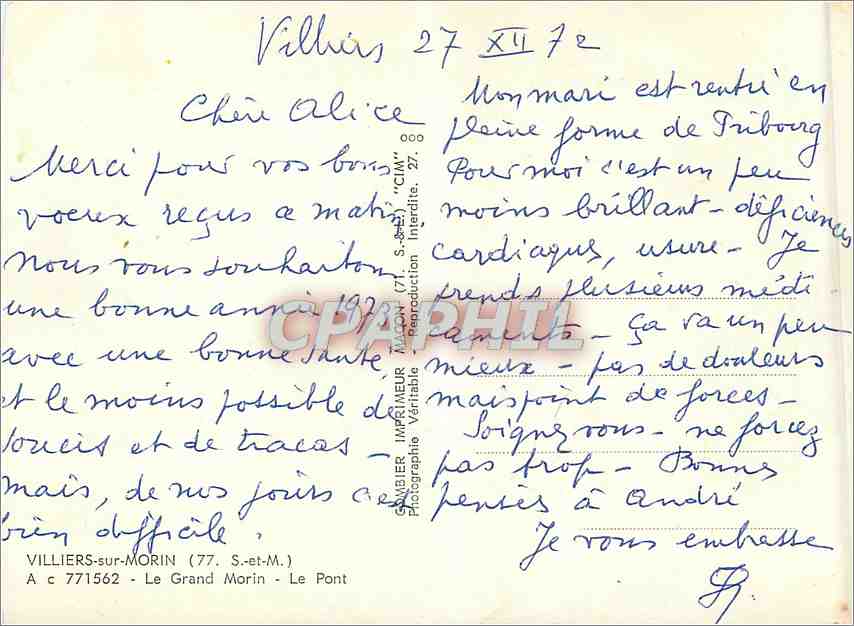 Villiers 27 XII 72
Chère Alice
Merci pour vos bons
voeux reçus ce matin
Nous vous souhaitons
une bonne année 1973
avec une bonne santé,
et le moins possible de
soucis et de tracas –
mais, de nos jours c'est
bien difficile.
Mon mari est rentré en
pleine forme de Fribourg
Pour moi c'est un peu
moins brillant – déficiences
cardiaques, usure – Je
prends plusieurs médi
caments – Ça va un peu
mieux – pas de douleurs
mais point de forces –
Soignez vous – ne forcez
pas trop – Bonnes
pensées à André
Je vous embrasse
GAMBIER IMPRIMEUR MACON (71. S.-&-L.) "CIM"
Photographie Véritable - Reproduction Interdite. 27.
CPAPHIL
VILLIERS-sur-MORIN (77. S.-et-M.)
A c 771562 - Le Grand Morin - Le Pont